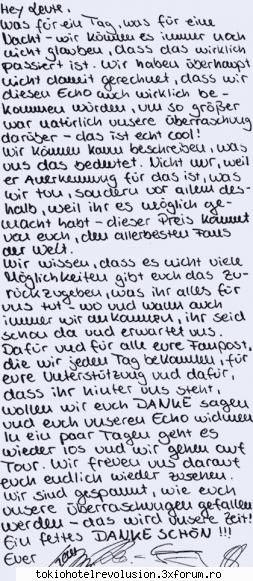 Hey Leute.
was für ein Tag, was für eine
Nacht - wir können es immer noch
nicht glauben, dass das wirklich
passiert ist. Wir haben überhaupt
nicht damit gerechnet, dass wir
diesen Echo auch wirklich be-
kommen würden, um so größer
war natürlich unsere Überraschung
darüber - das ist echt cool!
Wir können kaum beschreiben, was
uns das bedeutet. Nicht nur, weil
er Anerkennung für das ist, was
wir tun, sondern vor allem des-
halb, weil ihr es möglich ge-
macht habt - dieser Preis kommt
von euch, den allerbesten Fans
der Welt.
Wir wissen, dass es nicht viele
Möglichkeiten gibt euch das zu-
rückzugeben, was ihr alles für
uns tut - wo und wann auch
immer wir ankommen, ihr seid
schon da und erwartet uns.
Dafür und für alle eure Fanpost,
die wir jeden Tag bekommen, für
eure Unterstützung und dafür,
dass ihr hinter uns steht,
wollen wir euch DANKE sagen
und euch unseren Echo widmen
In ein paar Tagen geht es
wieder los und wir gehen auf
Tour. Wir freuen uns darauf
euch endlich wieder zusehen.
Wir sind gespannt, wie euch
unsere Überraschungen gefallen
werden - das wird unsere Zeit!
Ein fettes DANKE SCHÖN !!!
Euer
tokiohotelrevolusion.3xforum.ro